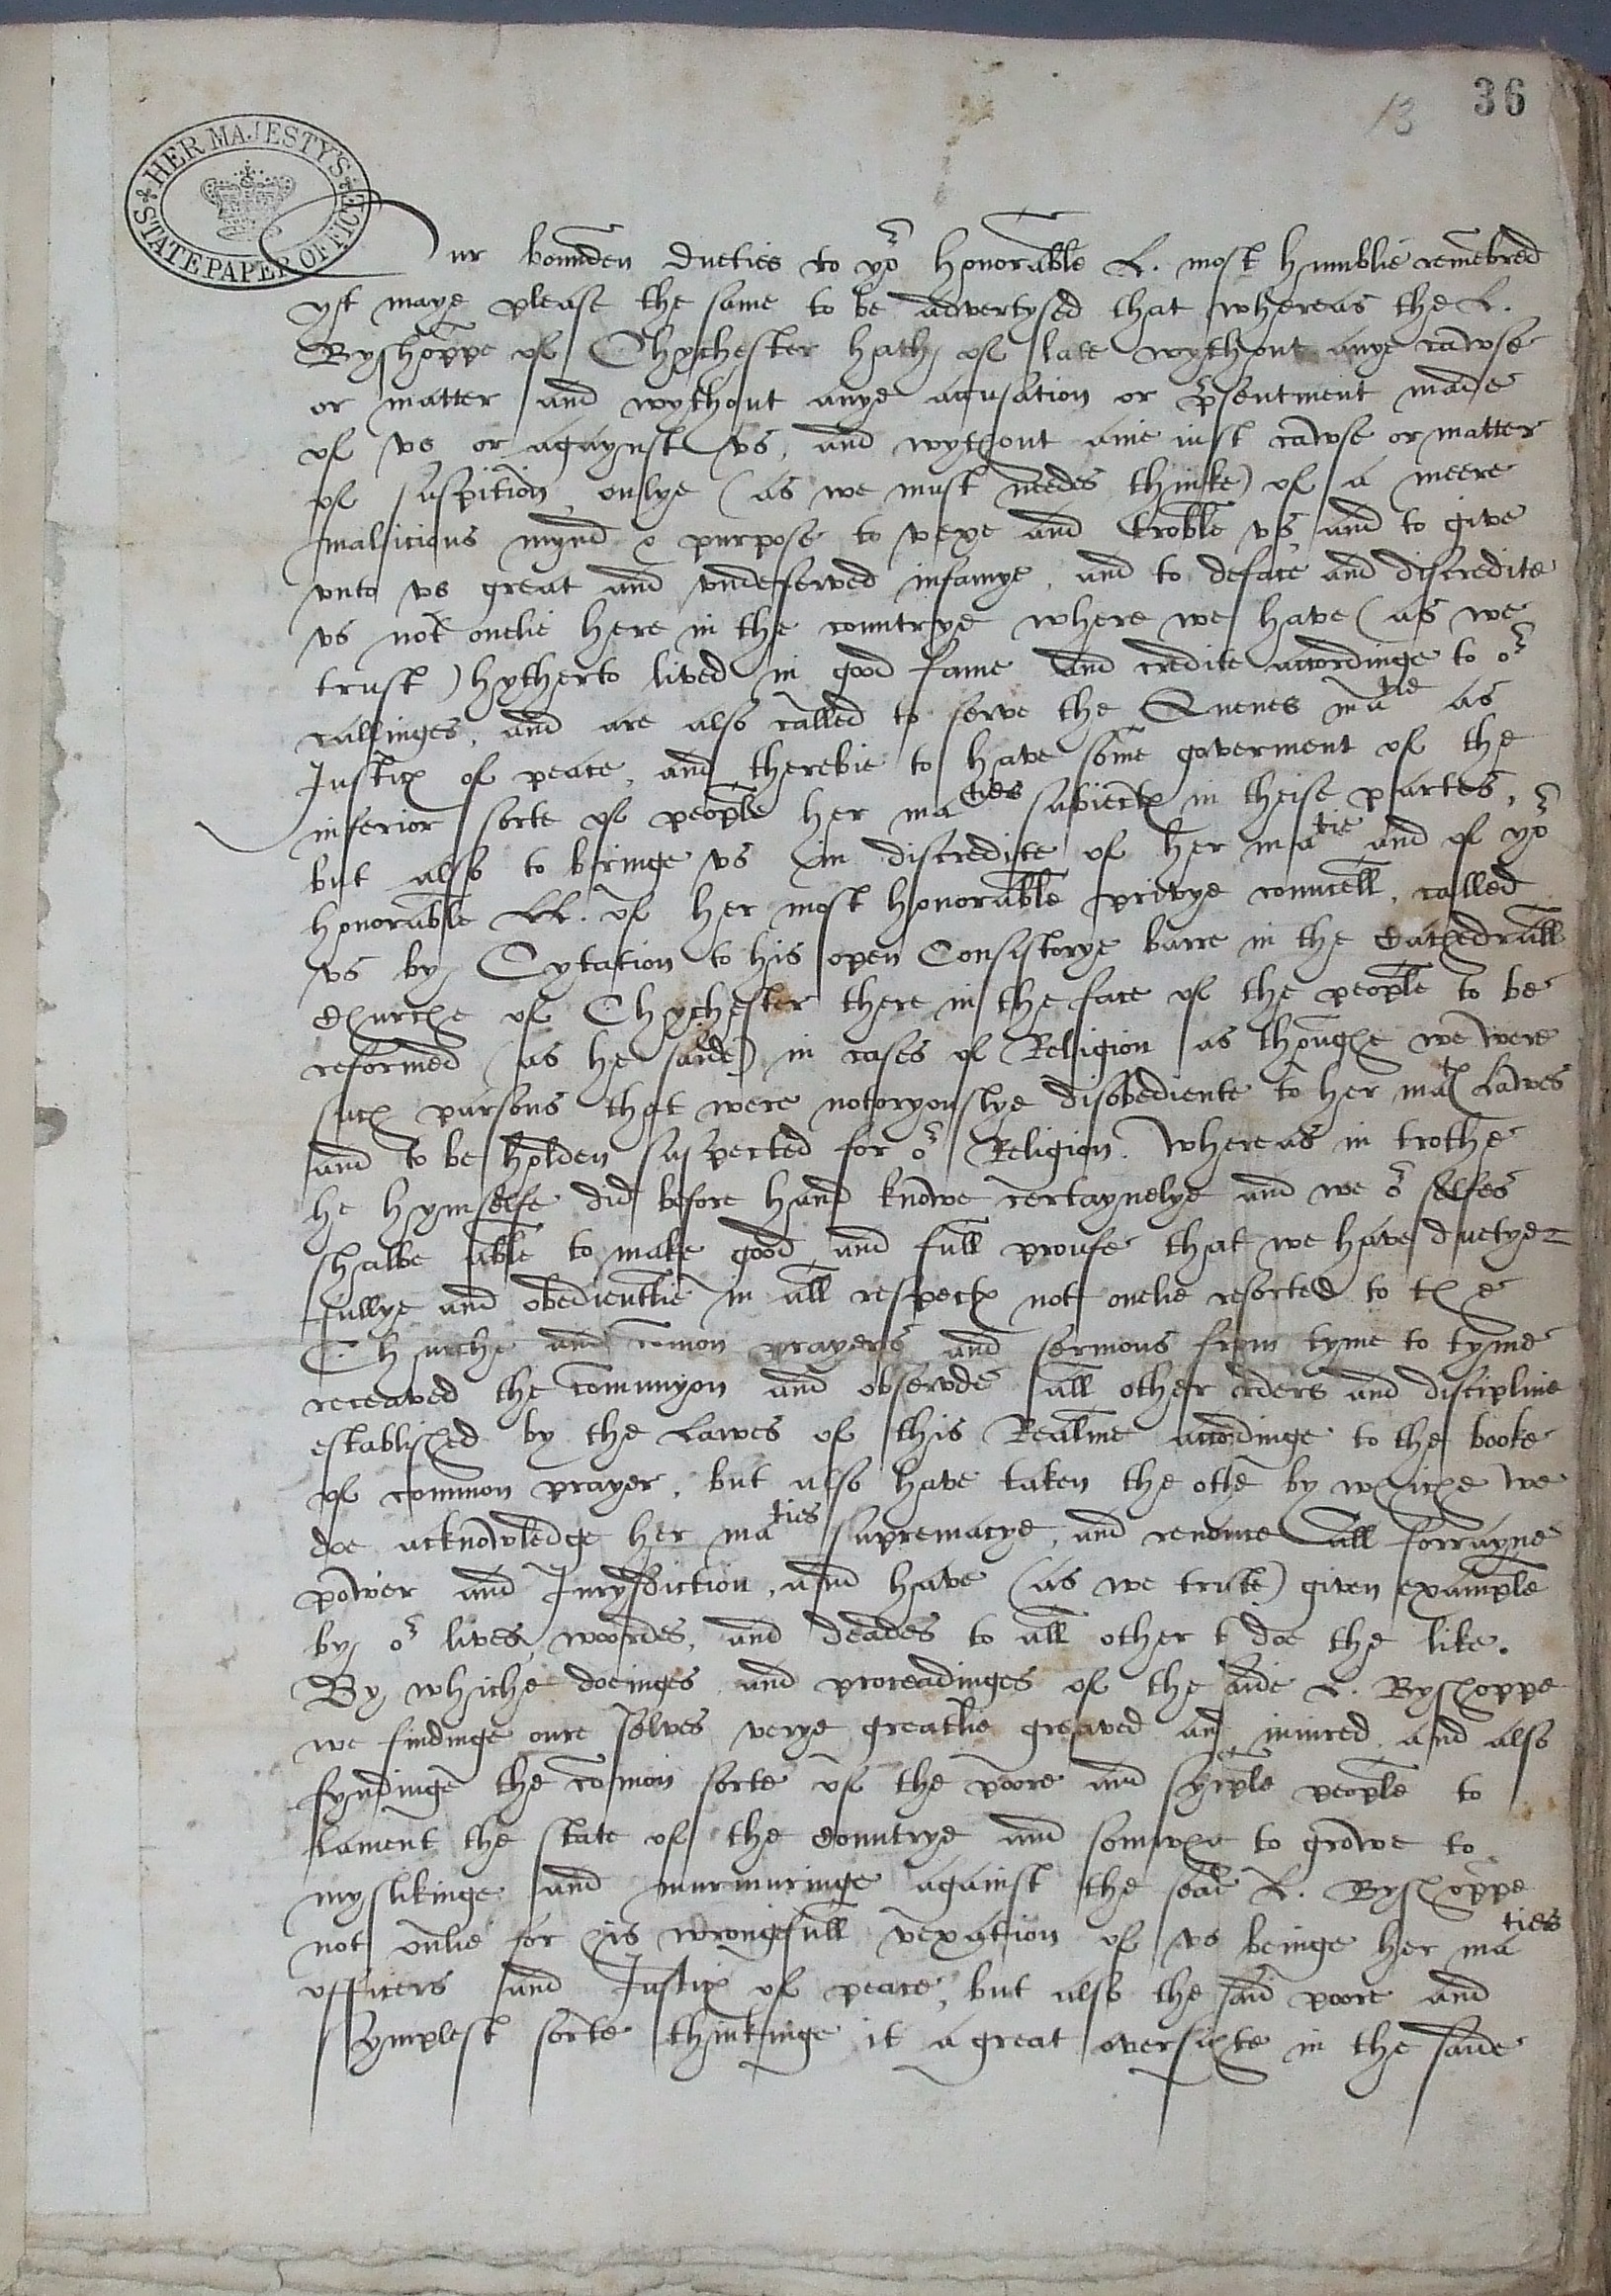 36
13
HER MAJESTY'S
STATE PAPER OFFICE
Our bounden dueties to yor honorable L. most humblie remēbred
yft maye please the same to be advertysed that whereas the L.
Byshoppe of Chychester hath of late wythout anye cawse
or matter and wythout anye accusation or p̄sentment made
of vs or agaynst vs, and wythout anie iust cawse or matter
of suspition onlye (as we must needes thinke) of a meere
malicious mynd & purpose to vexe and troble vs and to give
vnto vs great and vndeserved infamye, and to deface and discredite
vs not onelie here in the countrye where we have (as we
trust) hytherto lived in good fame and credite accordinge to or
callinges, and are also called to serve the Quenes matie as
Justices of peace, and therebie to have some goverment of the
inferior sorte of people her maties subiectes in theise partes,
but also to bringe vs in discredite of her matie and of yor
honorable LL. of her most honorable privye councell, called
vs by Cytation to his open Consistorye barre in the Cathedrall
Churche of Chychester there in the face of the people to be
reformed (as he saide) in cases of Religion as thoughe we were
such parsons that were notoryouslye disobediente to her mates Lawes
and to be holden suspected for or Religion. Whereas in trothe
he hymselfe did before hand knowe certaynelye and we or selfes
shalbe able to make good and full proufe that we have duetye=
fullye and obedientlie in all respectes not onelie resorted to the
Churche and comon prayers and sermons from tyme to tyme
receaved the comunyon and observde all other orders and discipline
established by the Lawes of this Realme accordinge to the booke
of common prayer, but also have taken the othe by whiche we
doe acknowledge her maties supremacye, and renounce all forrayne
power and Jurysdiction, and have (as we truste) given example
by or lives, woordes, and deades to all other t doe the like.
By whiche doeinges and proceadinges of the saide L. Byshoppe
we findinge oure selves verye greatlie greaved and iniured and also
fyndinge the comon sorte of the poore and symple people to
lament the state of the Countrye and somwhat to growe to
myslikinge and murmuringe against the sead L. Byshoppe
not onlie for his wrongefull vexation of vs beinge her maties
officers and Justices of peace, but also the said poore and
symplest sorte thinkinge it a great oversighte in the saide